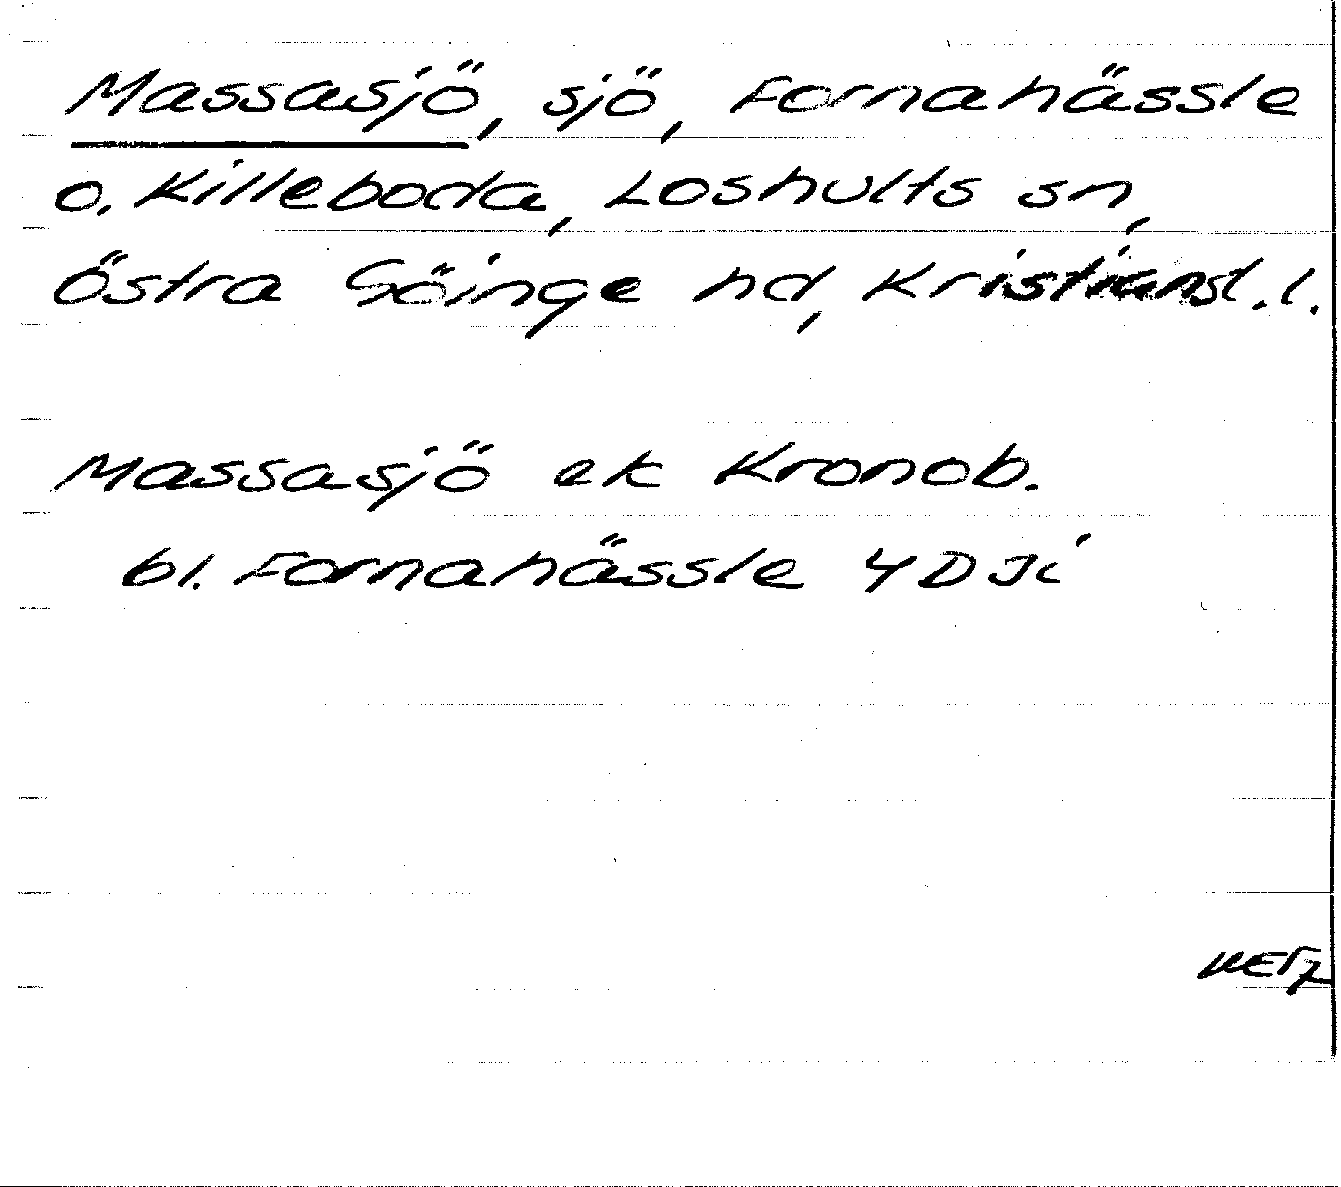 Massasjö, sjö, Fornahässle
o. Killeboda, Loshults sn,
Östra Göinge hd, Kristianst. l.
Massasjö ek Kronob.
bl. Fornahässle 4D